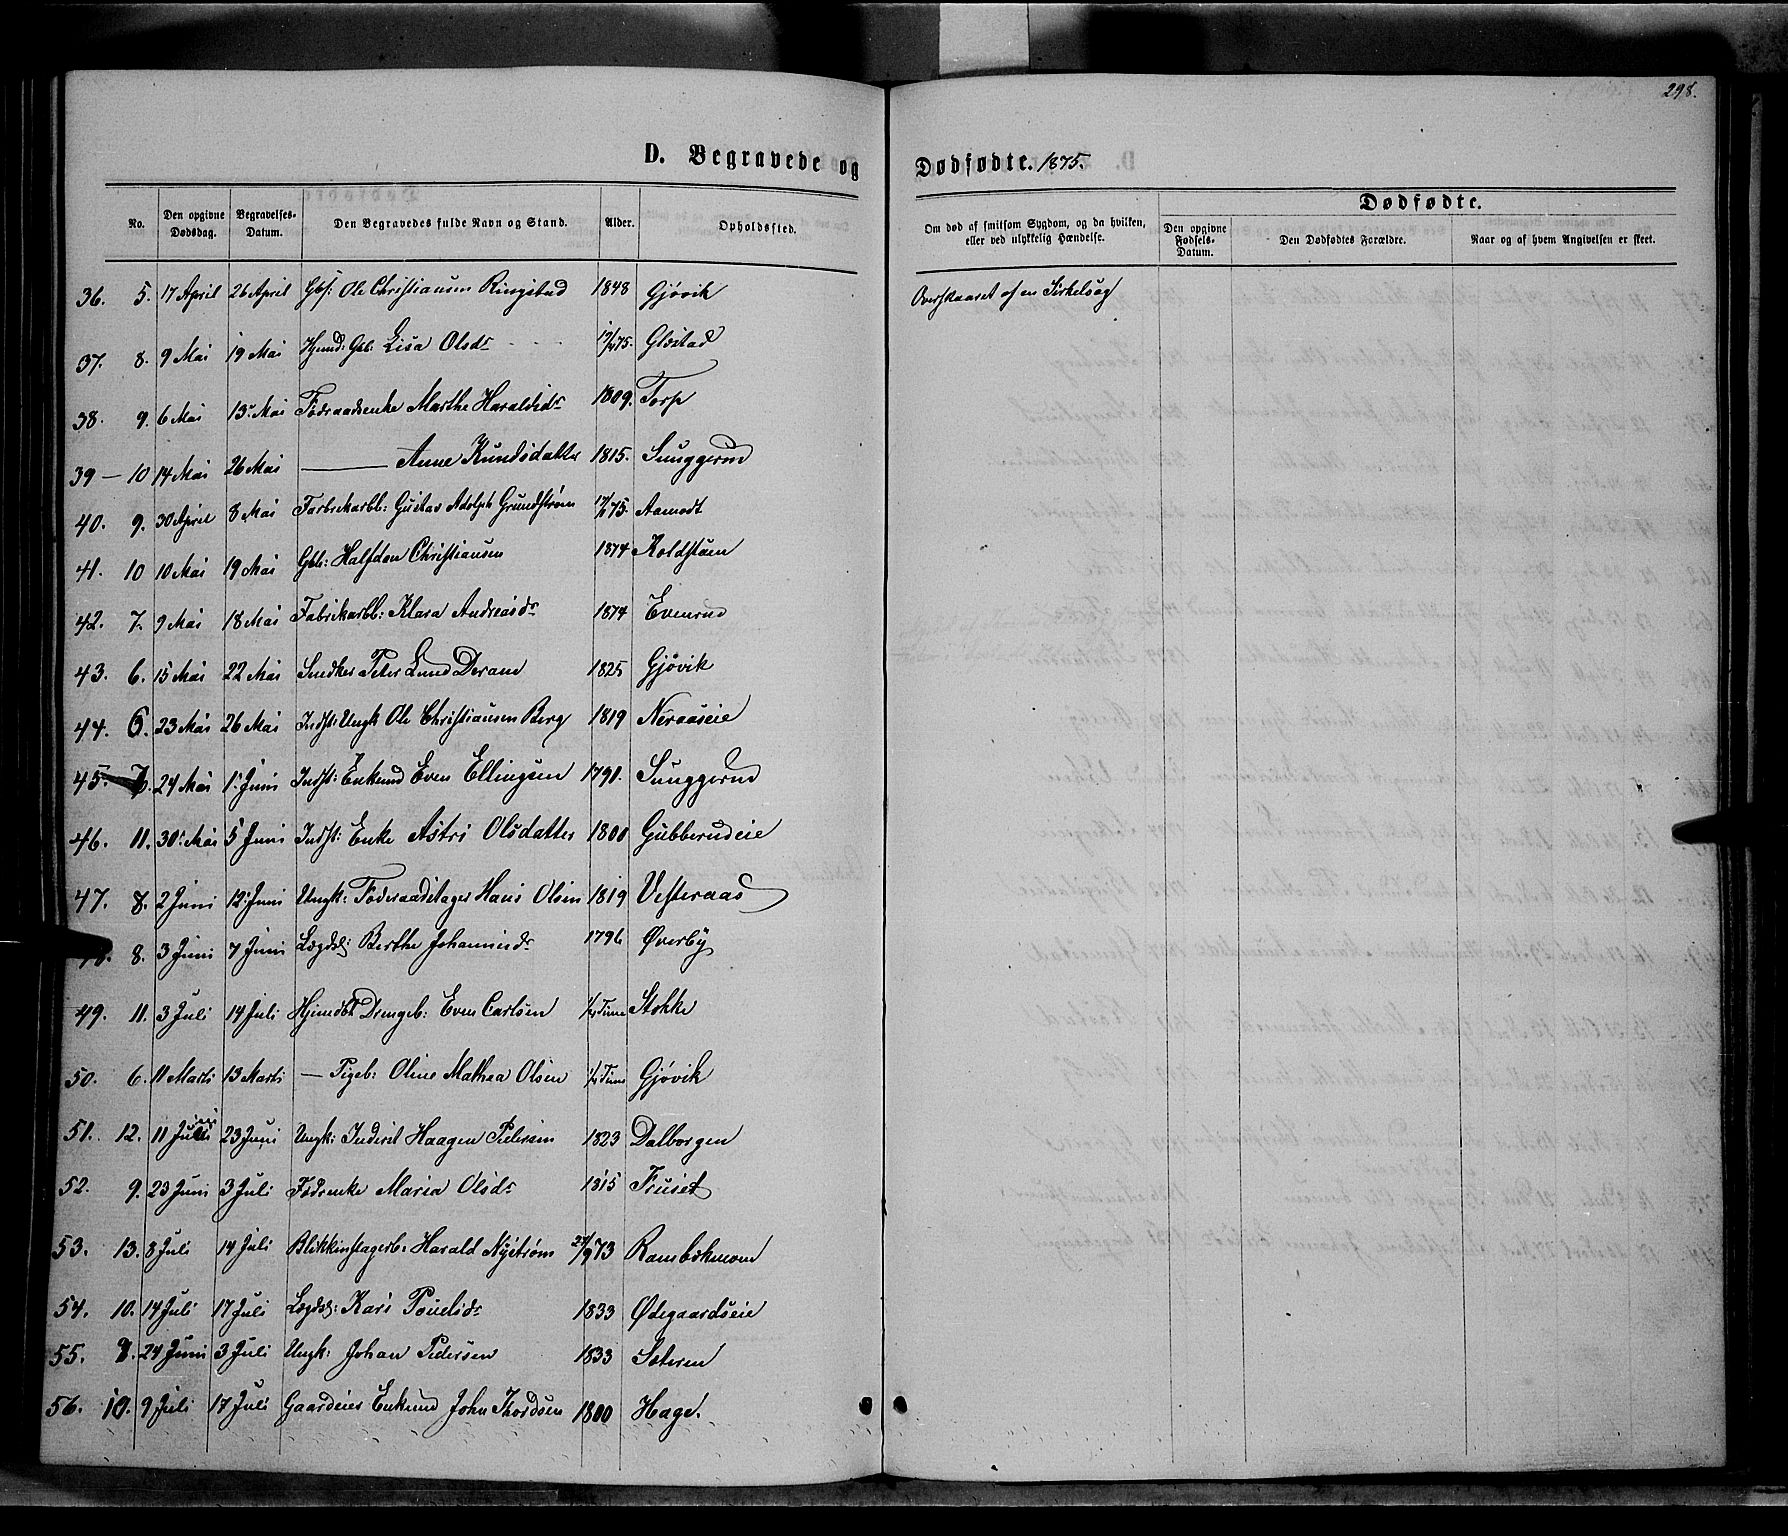 298.
D. Begravede og Dødfødte. 1875.
No. Den opgivne Dødsdag. Begravelses-Datum. Den Begravedes fulde Navn og Stand. Alder. Opholdssted. Om død af smitsom Sygdom, og da hvilken, eller ved ulykkelig Hændelse. Dødfødte. Den opgivne Fødsels-Datum. Den Dødfødtes Forældre. Naar og af hvem Angivelsen er skeet.
36. 5. 17 April 26 April Gbs: Ole Christiansen Ringstad 1848 Gjøvik Overskaaret af en Sirkelsag
37. 8. 9 Mai 19 Mai Lisa Olsdr 75. Glæstad
38. 9. 6 Mai 13 Mai Føderaadsenke Marthe Haraldsdr 1809. Torp
39 — 10 14 Mai 26 Mai —— Anne Knudsdatter 1815. Sunggerud
40. 9. 30 April 8 Mai Fabrikarbb: Gustav Adolph Grundstrøm 75. Aamodt
41. 10 10 Mai 19 Mai Gbb: Halfdan Christiansen 1874 Koldstuen
42. 7. 9 Mai 18 Mai Fabrikarbb: Klara Andreasdr 1874 Evenrud
43. 6. 15 Mai 22 Mai Snedker Peter Lund Dorum 1825 Gjøvik
44. 6. 23 Mai 26 Mai Indst: Ungk Ole Christiansen Berg 1819 Neraaseie
45. 7. 24 Mai 1 Juni Indst: Enkmd Even Ellingsen 1791. Sunggerud
46. 11. 30 Mai 5 Juni Indst: Enke Astri Olsdatter 1800 Gubberudeie
47. 8. 2 Juni 12 Juni Ungk: Føderaadstager Hans Olsen 1819 Vesteraas
48. 8. 3 Juni 7 Juni Lægdsl: Berthe Johannesdr 1796 Øverby
49. 11. 3 Juli 14 Juli Hjemdbt Drengeb: Even Carlsen 1/4 Time Stokke
50. 6. 11 Marts 13 Marts — Pigeb: Oline Mathea Olsen 1/4 Time Gjøvik
51. 12. 11 Juni 23 Juni Ungk: Inderst Haagen Pedersen 1823 Dalborgen
52. 9. 23 Juni 3 Juli Fødrenke Maria Olsdr 1815 Fruset
53. 13. 8 Juli 14 Juli Blikkenslagerb: Harald Nystrøm 24/9 73 Rambekmoen
54. 10. 14 Juli 17 Juli Lægdsl: Kari Poulsdr 1833 Ødegaardseie
55. 8. 24 Juni 3 Juli Ungk: Johan Pedersen 1833 Sæteren
56. 10. 9 Juli 17 Juli Gaardeier Enkmd John Thordsen 1800 Hage.